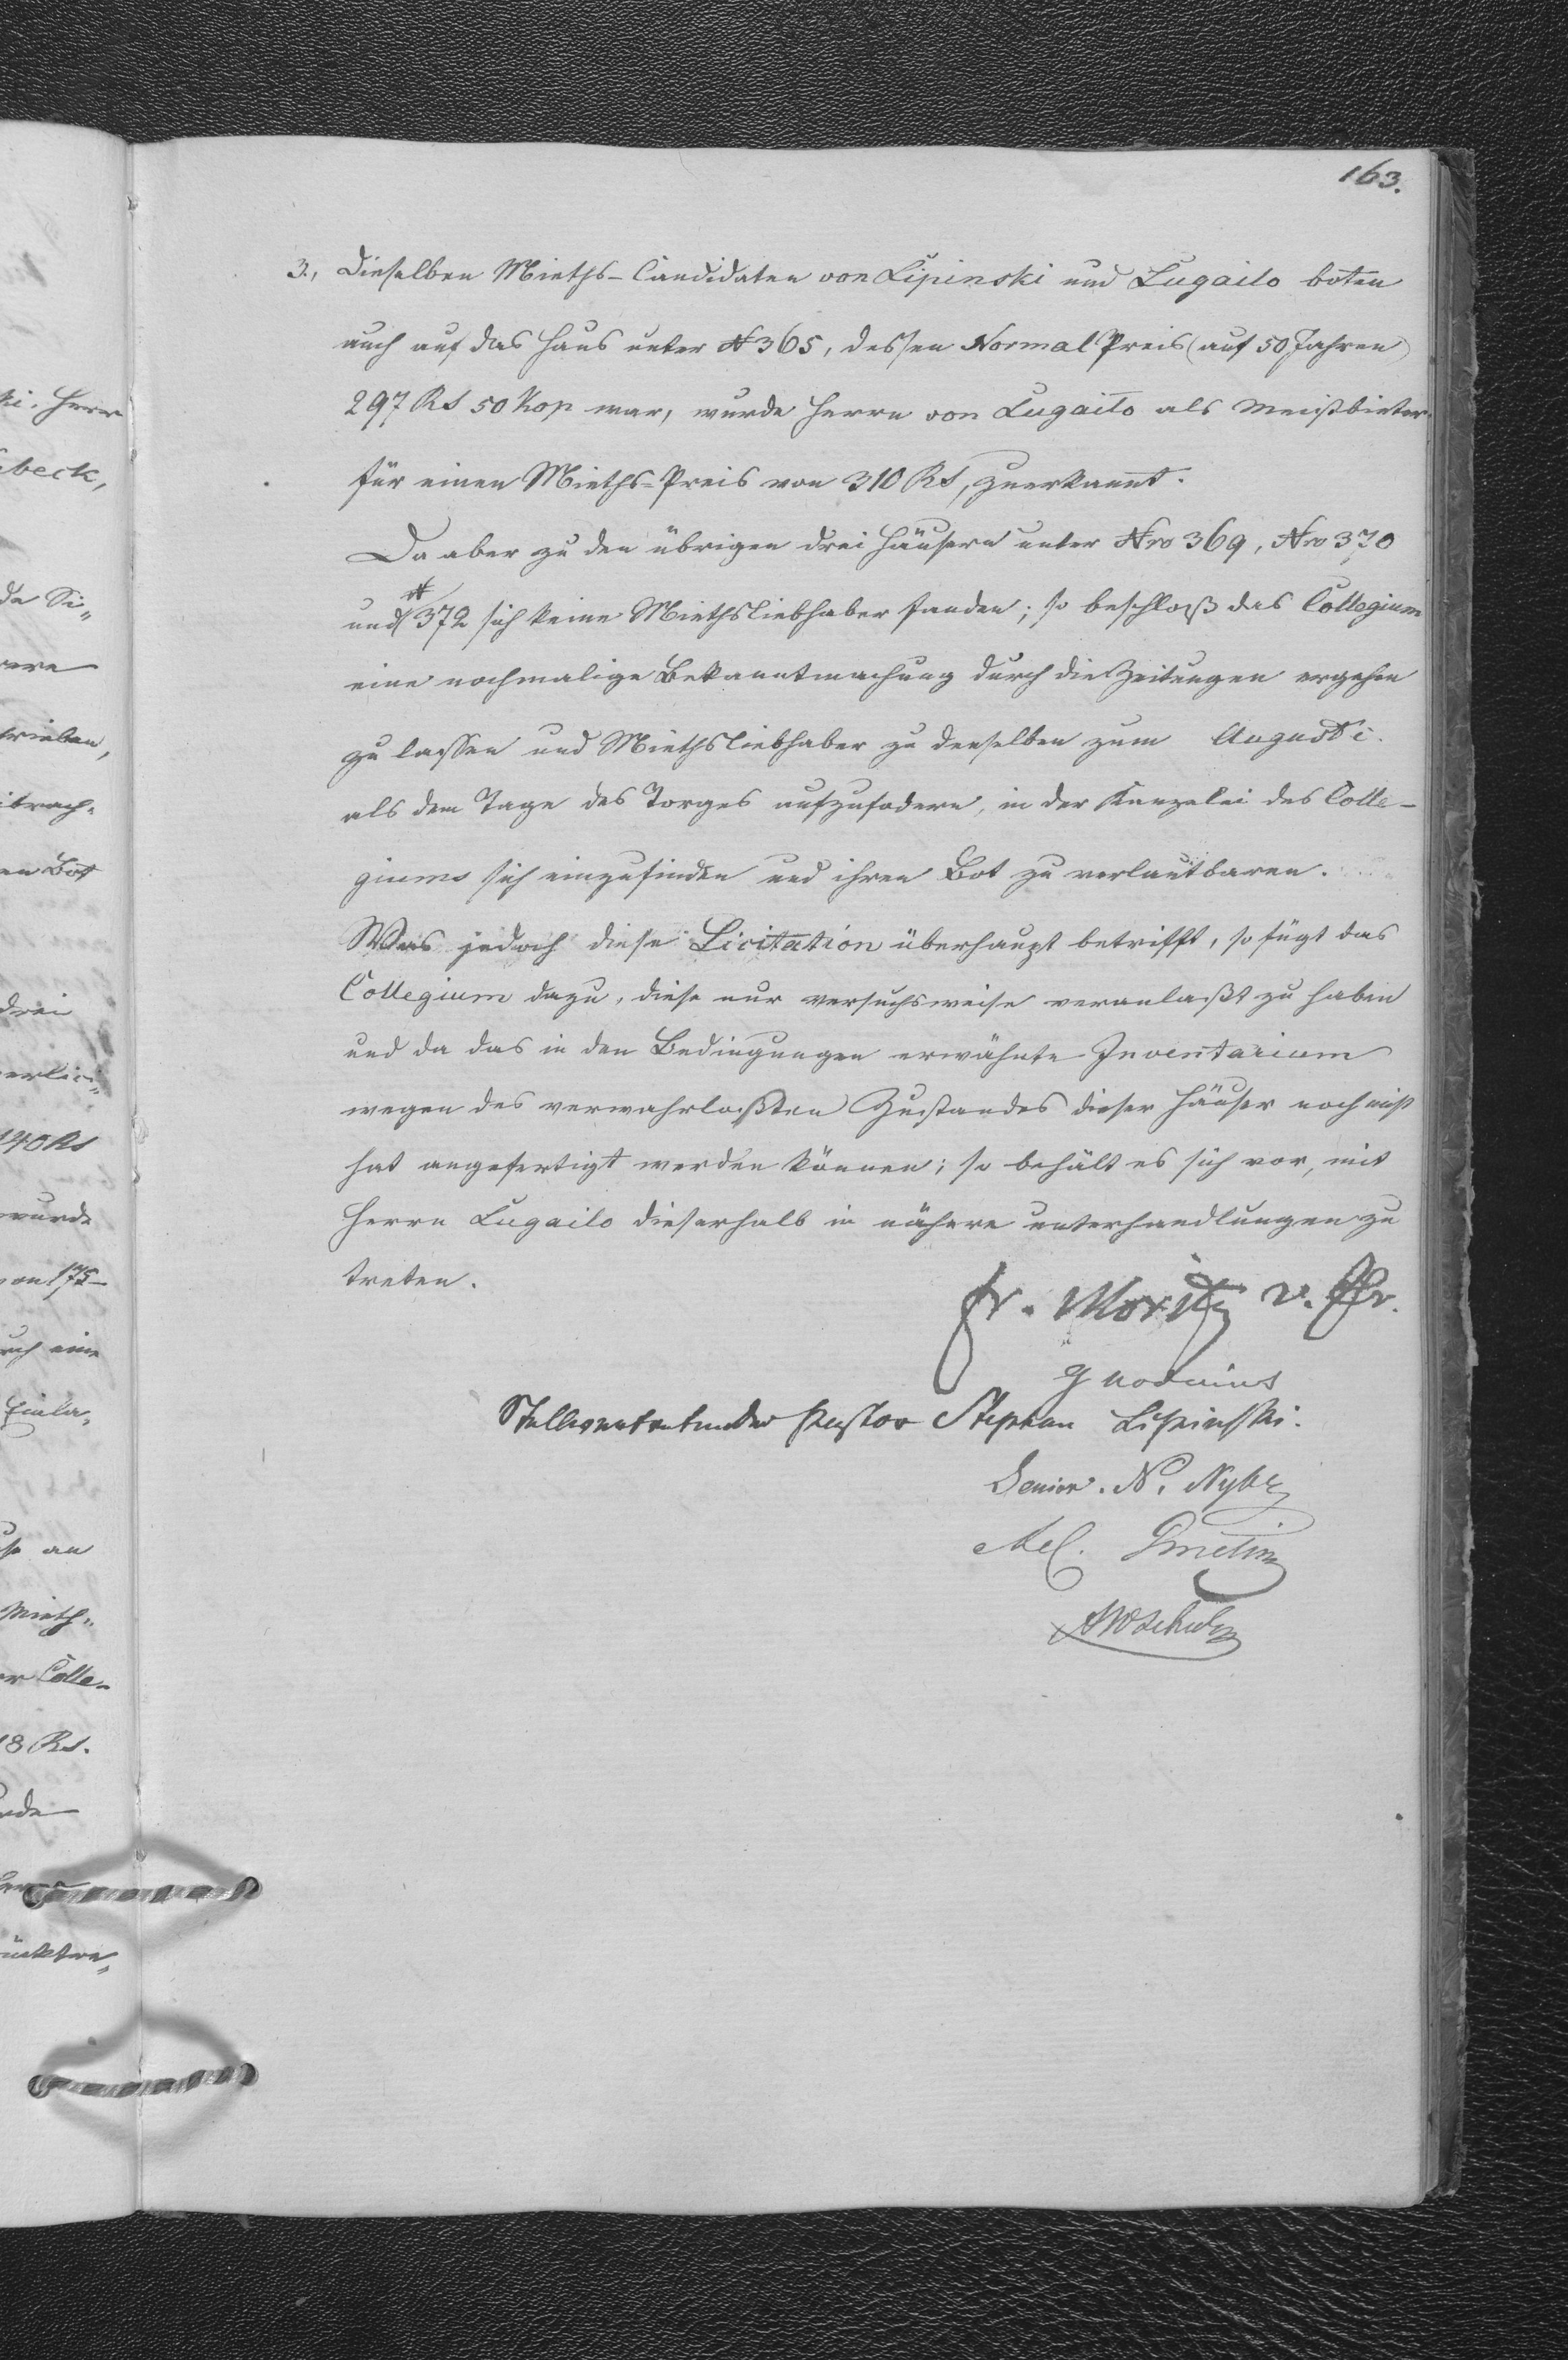 163.
3., Dieselben Mieths-Candidaten von Lipinski und Lugailo boten
auch auf das Haus unter № 365, dessen Normal Preis (auf 50 Jahren)
297 RS 50 Kop war, wurde Herrn von Lugailo als Meistbieter
für einen Mieths-Preis von 310 RS, zuerkannt.
Da aber zu den übrigen drei Häusern unter Nro 369, Nro 370
und № 372 sich keine Miethsliebhaber fanden; so beschloß das Collegium
eine nochmalige Bekanntmachung durch die Zeitungen ergehen
zu lassen und Miethsliebhaber zu denselben zum Augusti.
als dem Tage des Torges aufzufodern, in der Kanzelei des Colle-
giums sich einzufinden und ihren Bot zu verlautbaren.
Was jedoch diese Licitation überhaupt betrifft, so fügt das
Collegium dazu, diese nur versuchsweise veranlaßt zu haben
und da das in den Bedingungen erwähnte Inventarium
wegen des verwahrloßten Zustandes dieser Häuser noch nicht
hat angefertigt werden können; so behält es sich vor, mit
Herrn Lugailo dieserhalb in nähere Unterhandlungen zu
treten.
Fr. Moritz
Stellvertretender Pastor Stephan Lipinski.
Senior. N.
ki. Herr
beck,
da Si„
trieben,
en Bot
drei
140 RS
wurde
von 175-
auch eine
Einla„
an
Mieth„
Colle-
18 Rs.